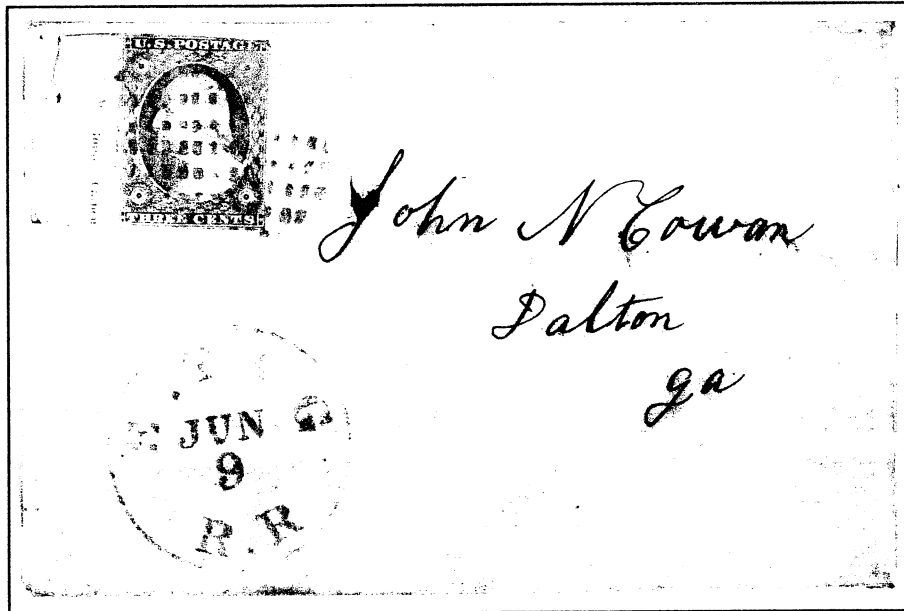 U.S. POSTAGE
THREE CENTS
John N Cowan
Dalton
ga
JUN
9
R.R